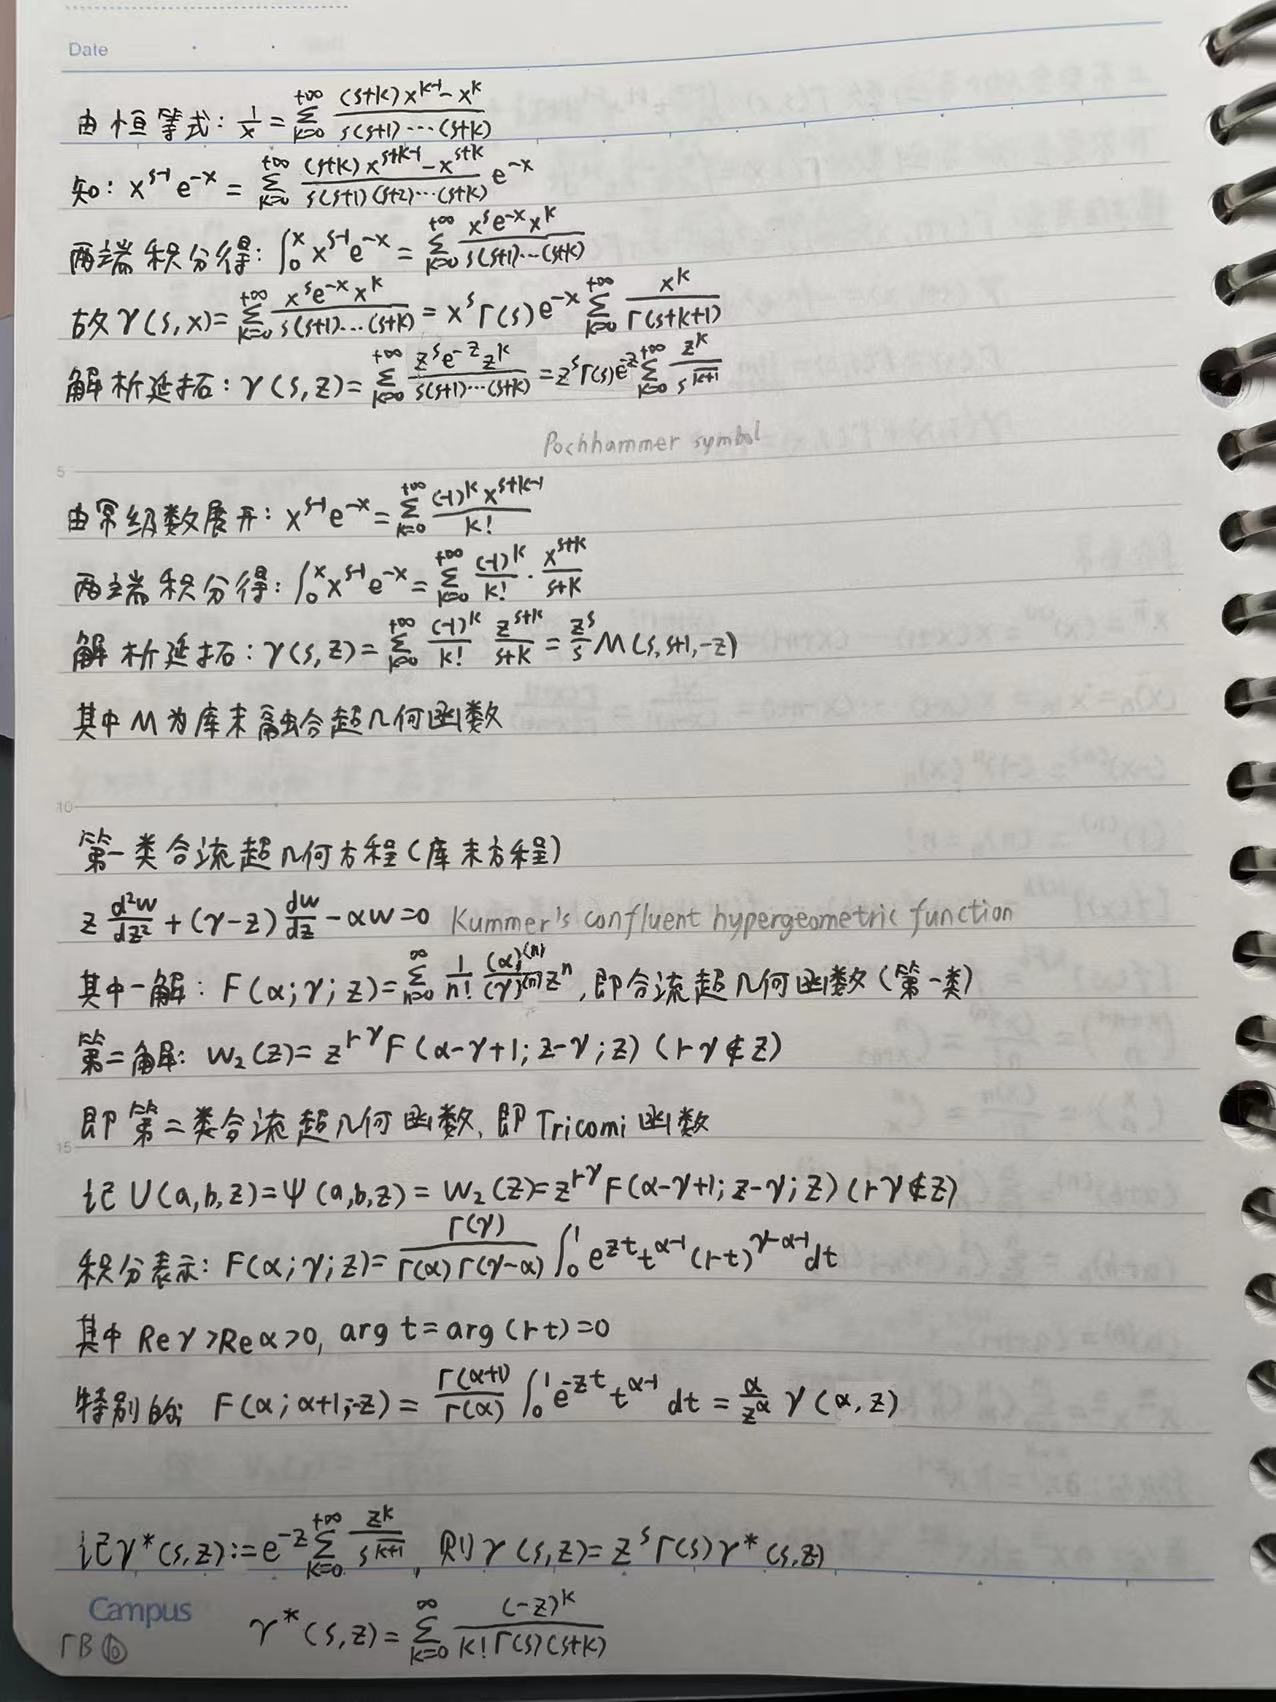 Date
由恒等式: 1/x = Σ_{k=0}^{+∞} ((s+k)x^{k-1} - x^k)/(s(s+1)···(s+k))
知: x^{s-1}e^{-x} = Σ_{k=0}^{+∞} ((s+k)x^{s+k-1} - x^{s+k})/(s(s+1)(s+2)···(s+k)) e^{-x}
两端积分得: ∫_0^x x^{s-1}e^{-x} = Σ_{k=0}^{+∞} (x^s e^{-x} x^k)/(s(s+1)···(s+k))
故 γ(s,x) = Σ_{k=0}^{+∞} (x^s e^{-x} x^k)/(s(s+1)···(s+k)) = x^s Γ(s) e^{-x} Σ_{k=0}^{+∞} x^k/Γ(s+k+1)
解析延拓: γ(s,z) = Σ_{k=0}^{+∞} (z^s e^{-z} z^k)/(s(s+1)···(s+k)) = z^s Γ(s) e^{-z} Σ_{k=0}^{+∞} z^k/s^{\overline{k+1}}
Pochhammer symbol
5
由幂级数展开: x^{s-1}e^{-x} = Σ_{k=0}^{+∞} ((-1)^k x^{s+k-1})/k!
两端积分得: ∫_0^x x^{s-1}e^{-x} = Σ_{k=0}^{+∞} (-1)^k/k! · x^{s+k}/(s+k)
解析延拓: γ(s,z) = Σ_{k=0}^{+∞} (-1)^k/k! z^{s+k}/(s+k) = z^s/s M(s,s+1,-z)
其中M为库末融合超几何函数
10
第一类合流超几何方程(库末方程)
z d²w/dz² + (γ-z) dw/dz - αw = 0 Kummer's confluent hypergeometric function
其中一解: F(α;γ;z) = Σ_{n=0}^{∞} 1/n! (α)^{(n)}/(γ)^{(n)} z^n, 即合流超几何函数(第一类)
第二解: w₂(z) = z^{1-γ} F(α-γ+1; 2-γ; z) (1-γ∉Z)
即第二类合流超几何函数, 即Tricomi函数
15
记 U(a,b,z) = Ψ(a,b,z) = w₂(z) = z^{1-γ} F(α-γ+1; 2-γ; z) (1-γ∉Z)
积分表示: F(α;γ;z) = Γ(γ)/(Γ(α)Γ(γ-α)) ∫_0^1 e^{zt} t^{α-1} (1-t)^{γ-α-1} dt
其中 Re γ > Re α > 0, arg t = arg(1-t) = 0
特别的: F(α;α+1;-z) = Γ(α+1)/Γ(α) ∫_0^1 e^{-zt} t^{α-1} dt = α/z^α γ(α,z)
记γ*(s,z) := e^{-z} Σ_{k=0}^{+∞} z^k/s^{\overline{k+1}}, 则 γ(s,z) = z^s Γ(s) γ*(s,z)
γ*(s,z) = Σ_{k=0}^{∞} (-z)^k/(k!Γ(s)(s+k))
Campus
ΓB⑩